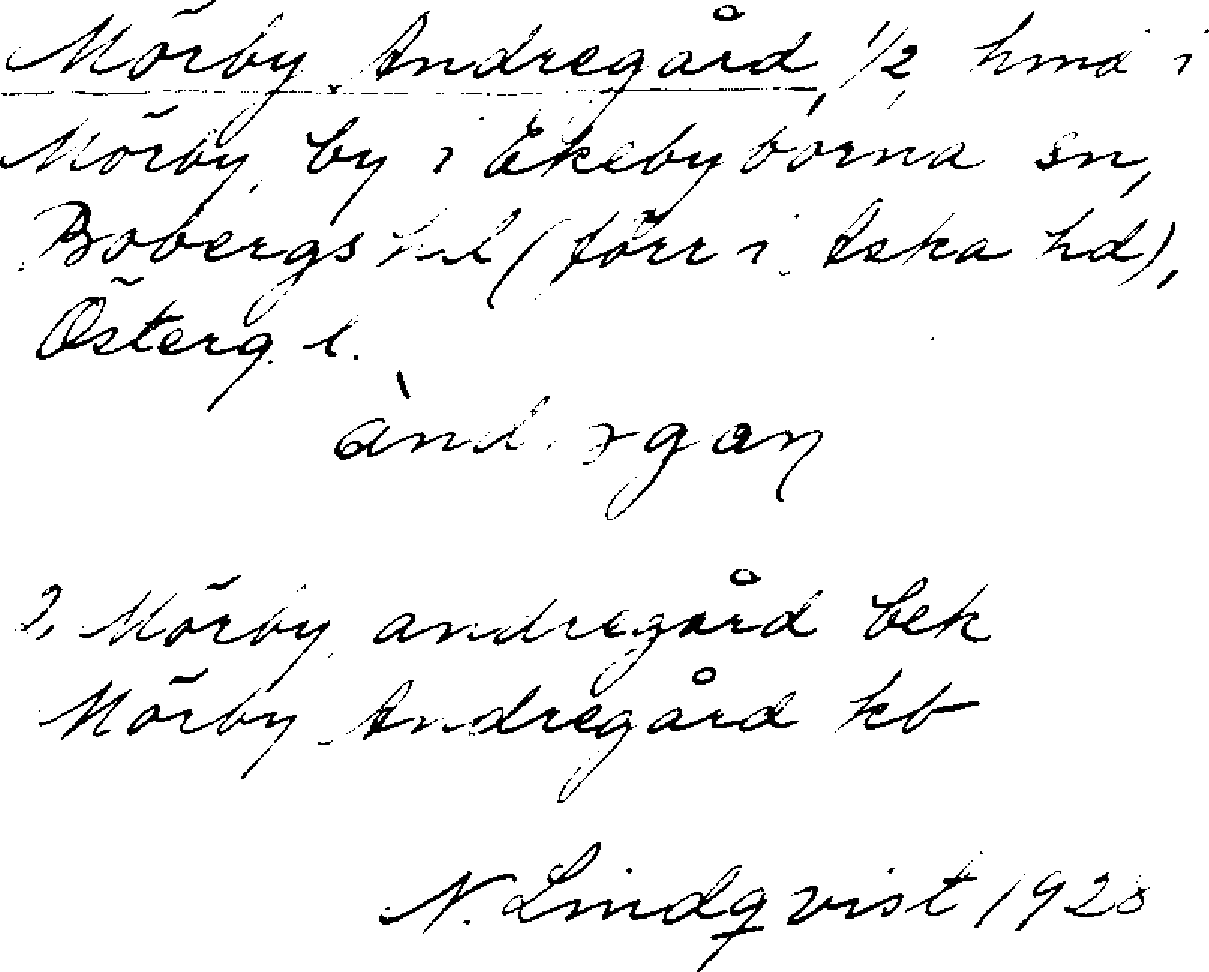 Mörby Andregård, 1/2 hmd i
Mörby by i Ekebyborna sn,
Bobergs hd (förr i Aska hd),
Österg. l.
2, Mörby andregård bek
Mörby Andregård kb
N. Lindqvist 1928